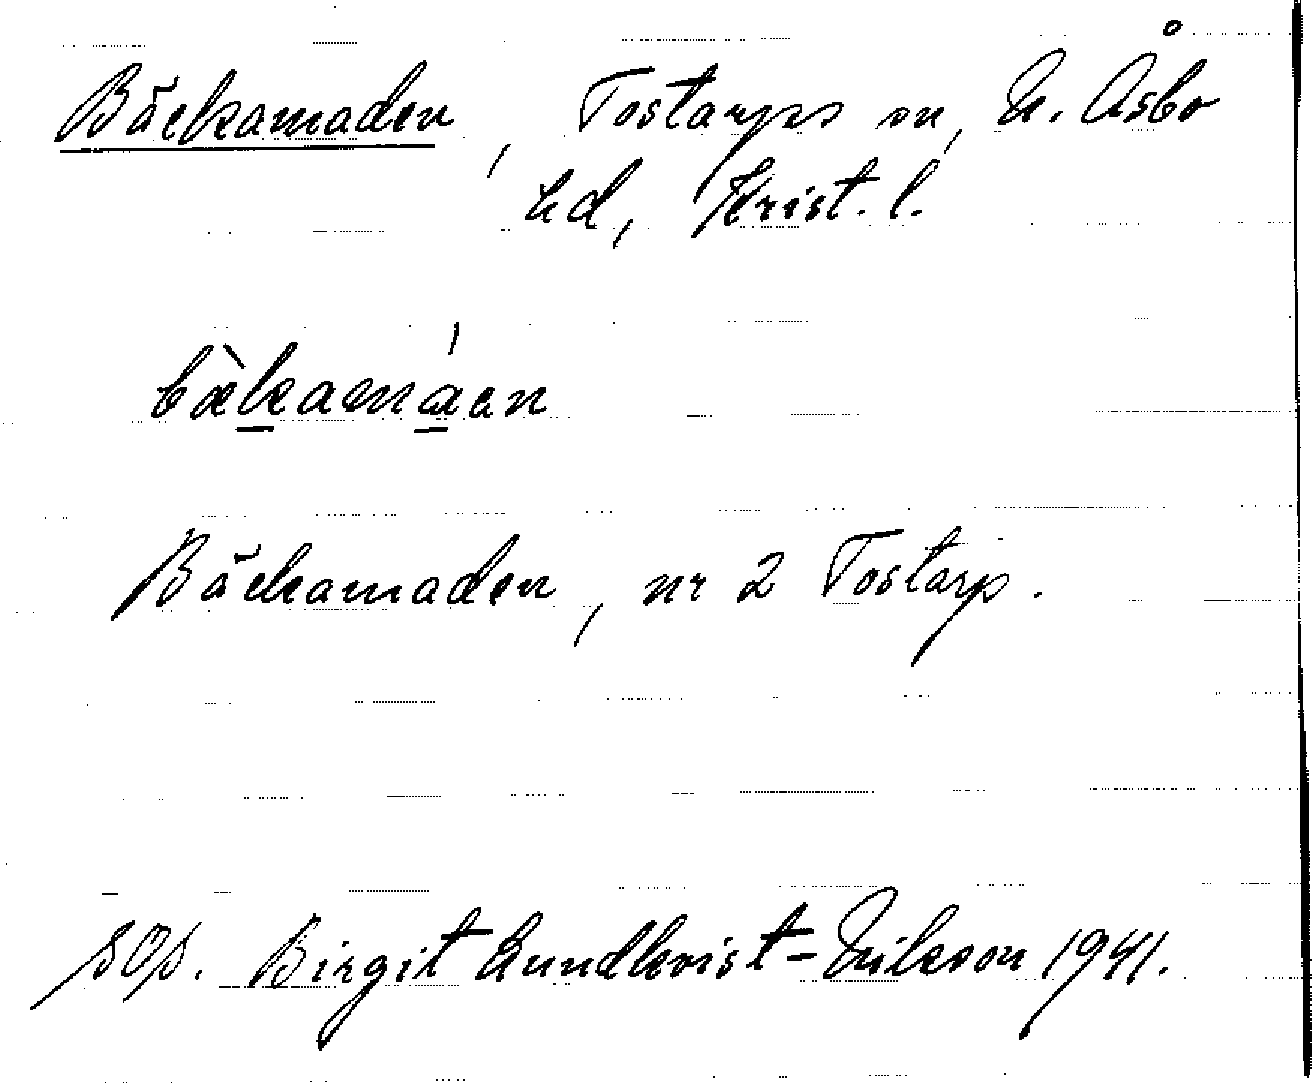 Bäckamaden, Tostarps sn, N. Åsbo
hd, Krist. l.
bæ̀kamáan
Bäckamaden, nr 2 Tostarp.
SOS. Birgit Lundkvist-Eriksson 1941.